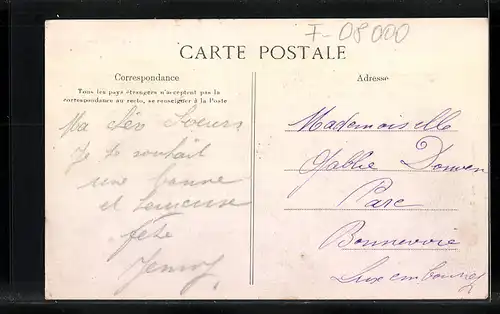 F-08000
CARTE POSTALE
Correspondance
Tous les pays étrangers n'acceptent pas la
correspondance au recto, se renseigner à la Poste
Ma
Je te souhait
une bonne
et
fête
Adresse
Mademoiselle
Parc
Bonnevoie
Luxembourg